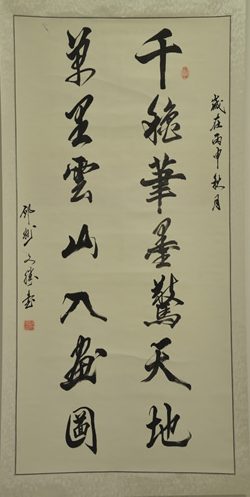 歲在丙申秋月
千穐筆墨驚天地
萬里雲山入畫圖
書